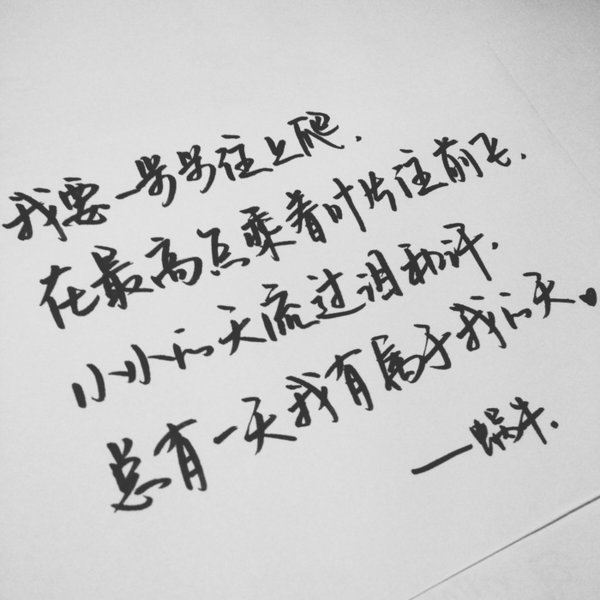 我要一步步往上爬.
在最高点乘着叶片往前飞.
小小的天流过泪和汗.
总有一天我有属于我的天。♥
——蜗牛.